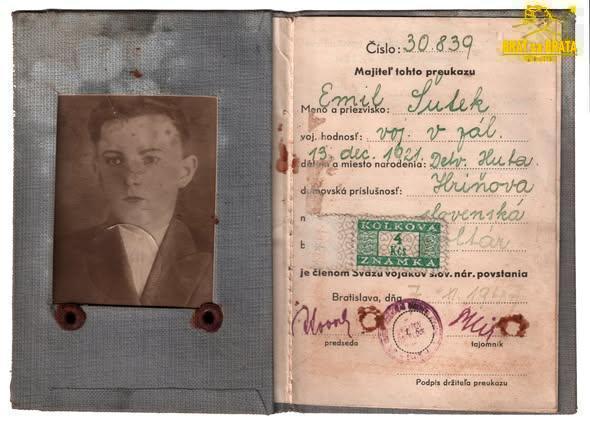 BRAT ZA BRATA
Číslo: 30.839
Majiteľ tohto preukazu
Meno a priezvisko: Emil Sutek
voj. hodnosť: voj. v zál.
dátum a miesto narodenia: 13. dec. 1921. Detv. Huta.
domovská príslušnosť: Hriňová
slovenská
KOLKOVÁ
4
Kčs
ZNÁMKA
je členom Sväzu vojakov slov. nár. povstania
Bratislava, dňa
predseda
tajomník
Podpis držiteľa preukazu